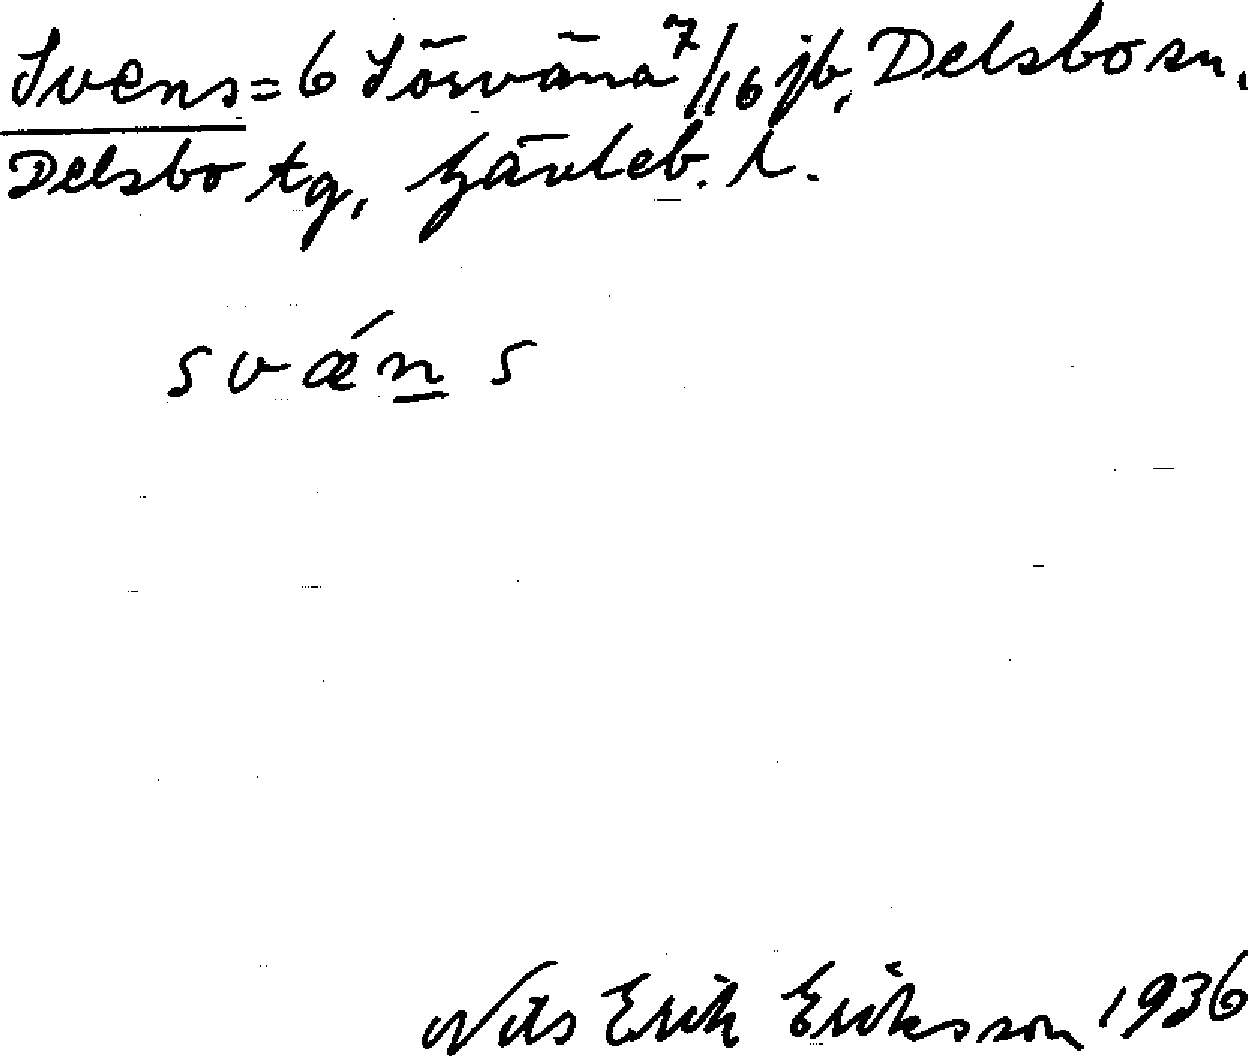 Svens = 6 Sörväna 7/16 jb, Delsbo sn.
Delsbo tg, Gävleb. l.
svǽn̲s
Nils Erik Eriksson 1936